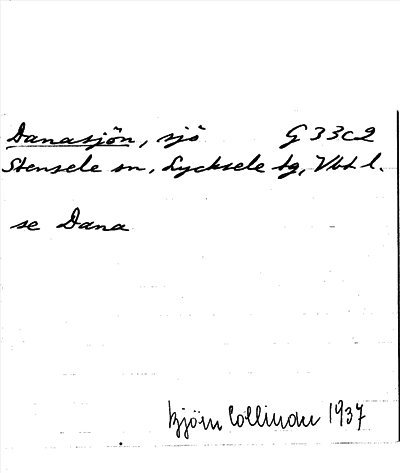 Danasjön, sjö G 33c2
Stensele sn, Lycksele tg, Vbt l.
se Dana
Björn Collinder 1937